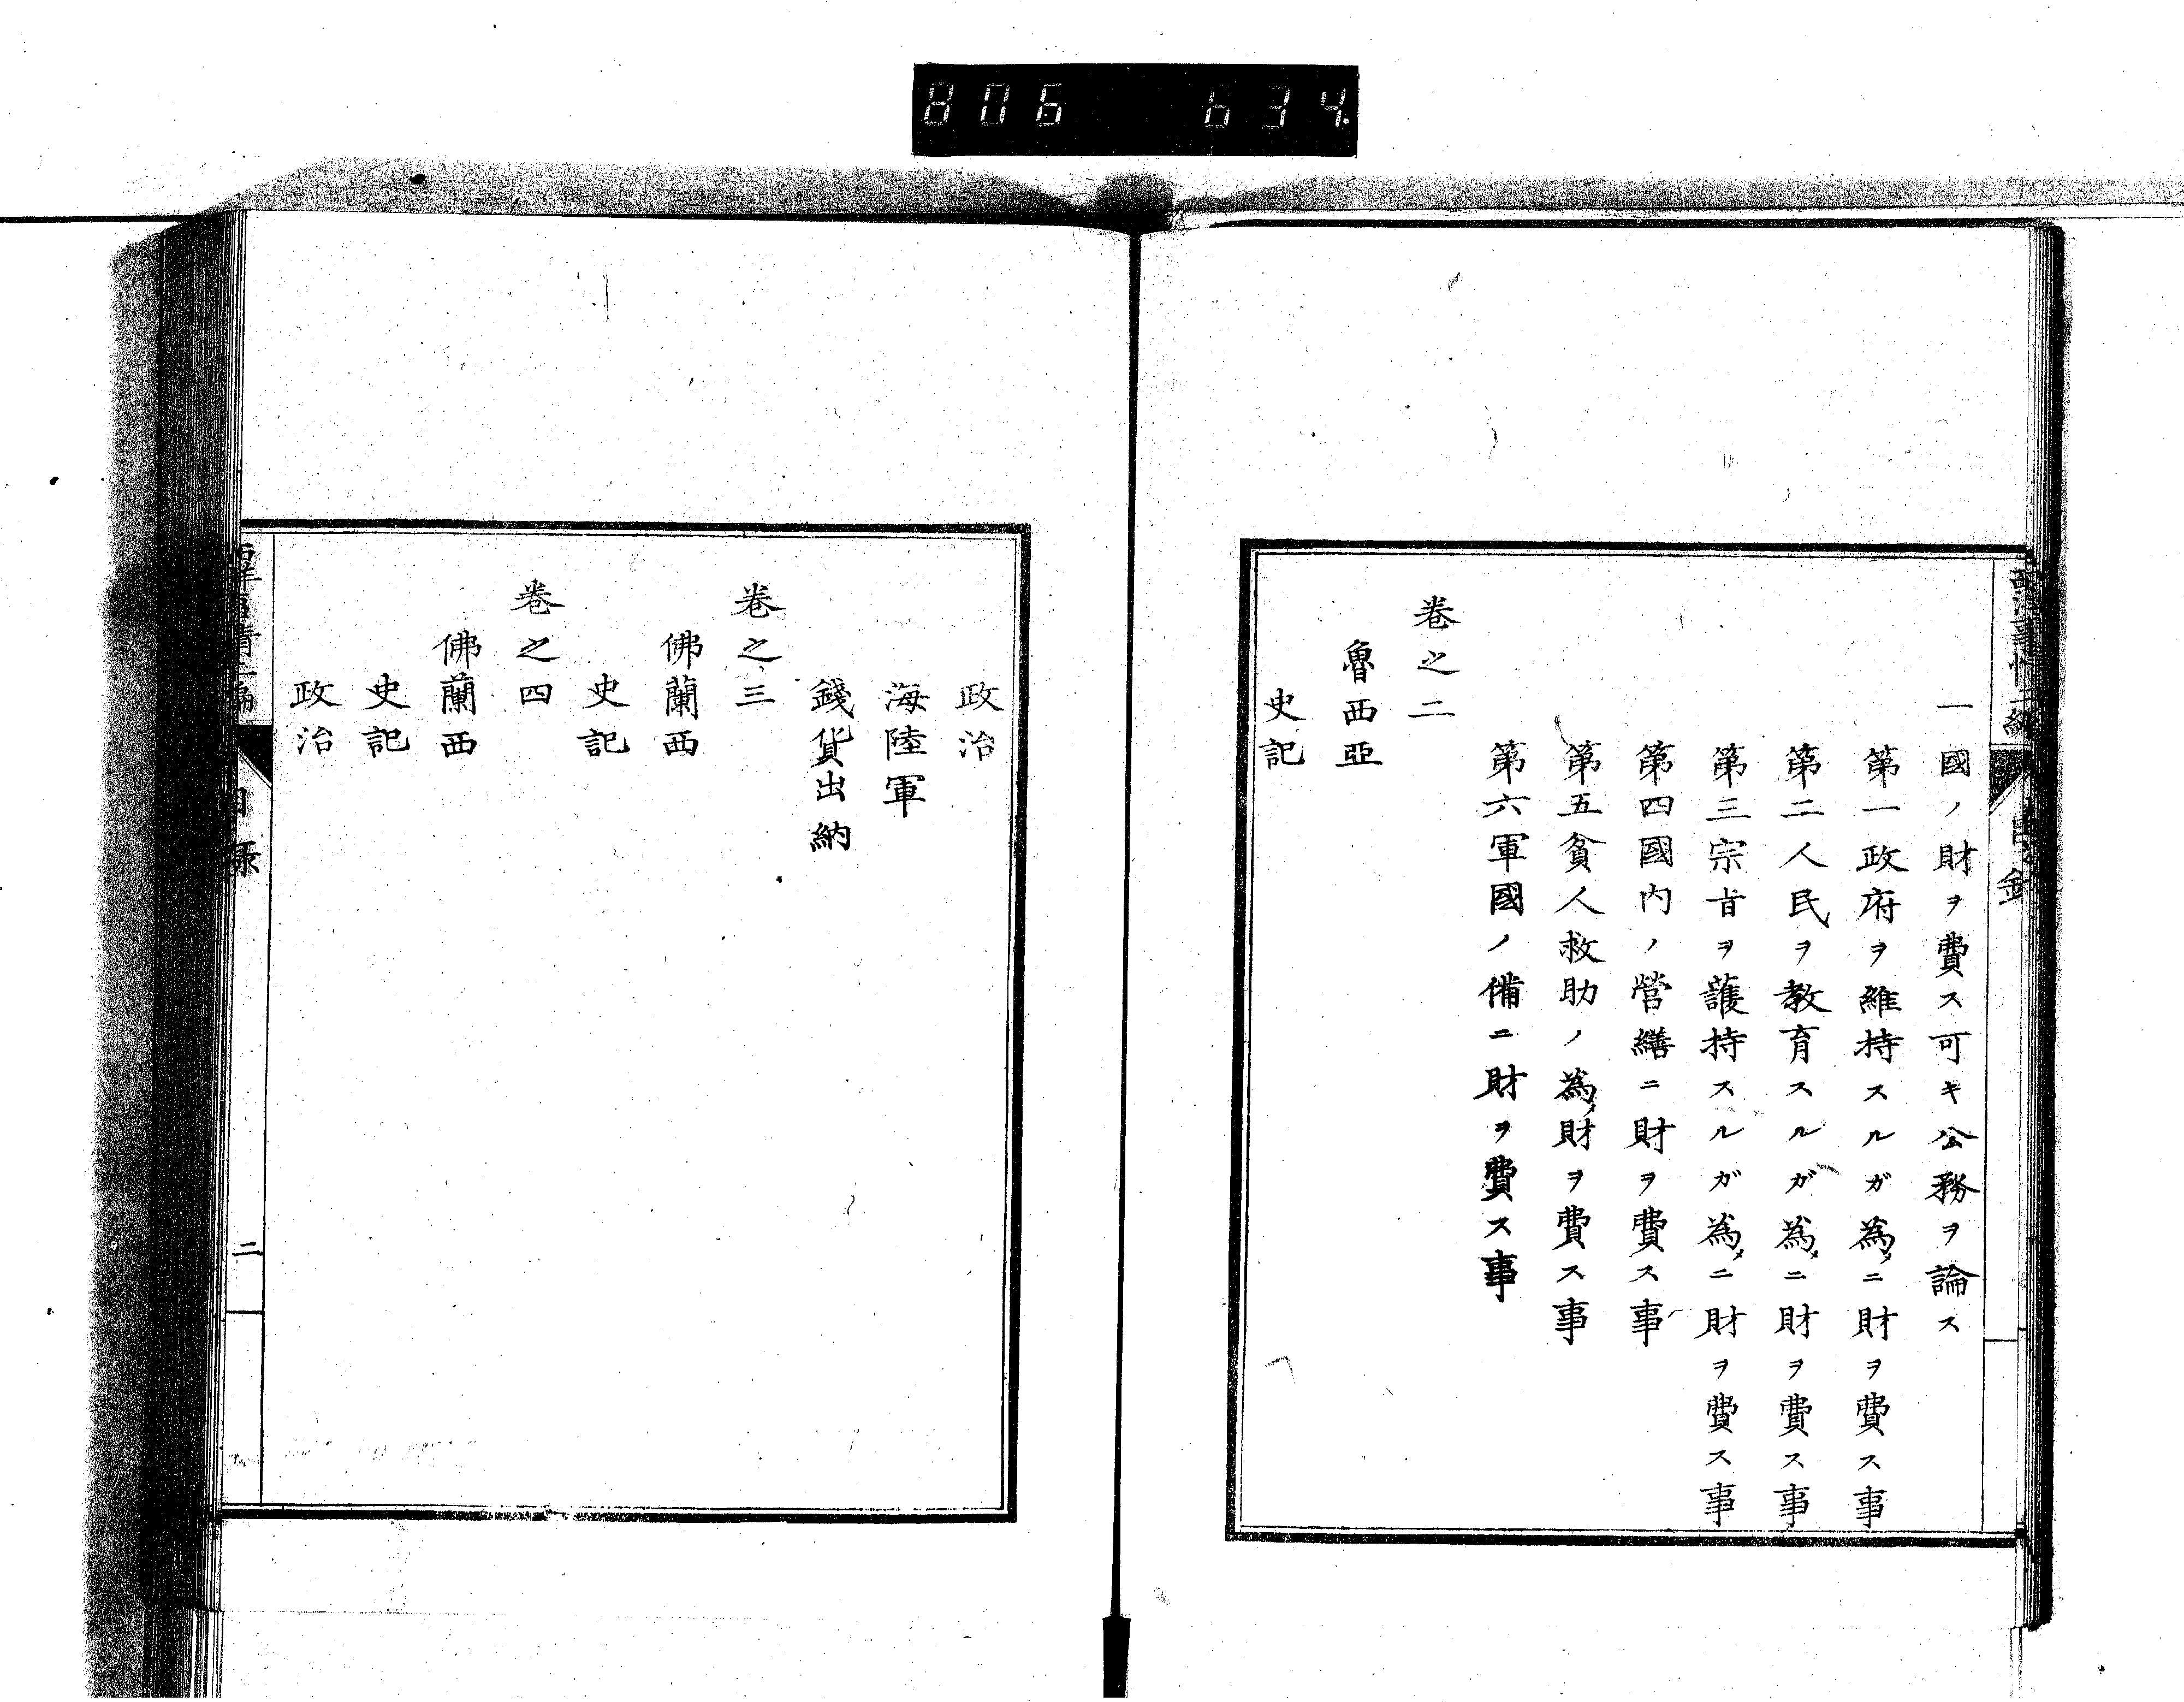 806 634.
一國ノ財ヲ費ス可キ公務ヲ論ス
第一政府ヲ維持スルガ為メニ財ヲ費ス事
第二人民ヲ教育スルガ為メニ財ヲ費ス事
第三宗旨ヲ護持スルガ為メニ財ヲ費ス事
第四國内ノ營繕ニ財ヲ費ス事
第五貧人救助ノ為メ財ヲ費ス事
第六軍國ノ備ニ財ヲ費ス事
卷之二
魯西亞
史記
政治
海陸軍
錢貨出納
卷之三
佛蘭西
史記
卷之四
佛蘭西
史記
政治
目録
二